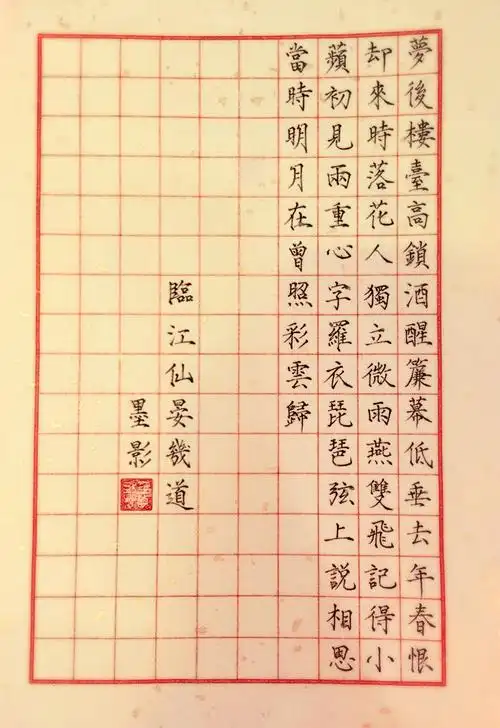 夢後樓臺高鎖酒醒簾幕低垂去年春恨
却來時落花人獨立微雨燕雙飛記得小
蘋初見兩重心字羅衣琵琶弦上説相思
當時明月在曾照彩雲歸
臨江仙晏幾道
墨影